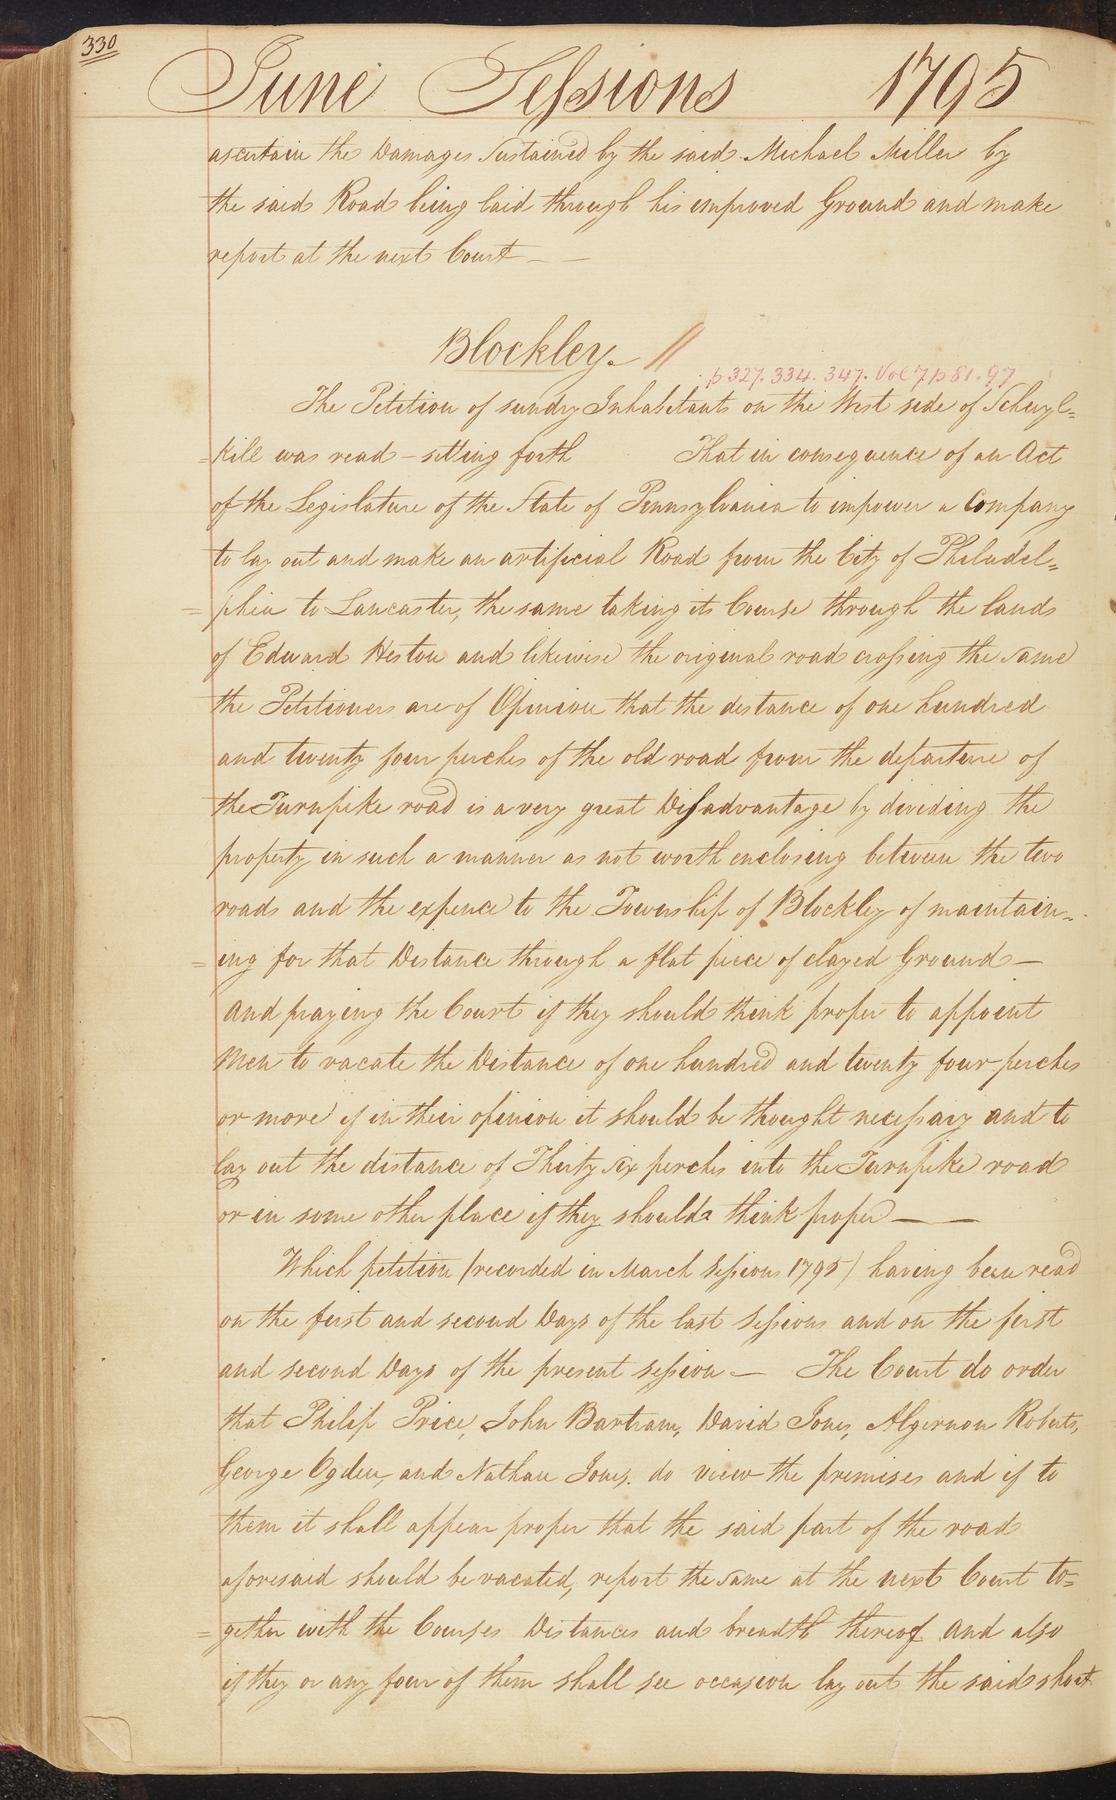 330
June Sessions 1795
ascertain the Damages sustained by the said Michael Miller by
the said Road being laid through his improved Ground and make
report at the next Court — —
Blockley. //
p 327. 334. 347. Vol 7 p 81. 97
The Petition of sundry Inhabitants on the West side of Schuyl=
=kill was read – setting forth That in consequence of an Act
of the Legislature of the State of Pennsylvania to impower a Company
to lay out and make an artificial Road from the City of Philadel=
=phia to Lancaster, the same taking its Course through the lands
of Edward Heston and likewise the original road crossing the same
the Petitioners are of Opinion that the distance of one hundred
and twenty four perches of the old road from the departure of
the Turnpike road is a very great Disadvantage by dividing the
property in such a manner as not worth enclosing between the two
roads and the expence to the Township of Blockley of maintain=
=ing for that Distance through a flat piece of clayed Ground —
And praying the Court if they should think proper to appoint
Men to vacate the Distance of one hundred and twenty four perches
or more if in their opinion it should be thought necessary and to
lay out the distance of Thirty six perches into the Turnpike road
or in some other place if they should think proper — —
Which petition (recorded in March Sessions 1795) having been read
on the first and second Days of the last Sessions and on the first
and second Days of the present session — The Court do order
that Philip Price, John Bartram, David Jones, Algernon Roberts,
George Ogden, and Nathan Jones. do view the premises and if to
them it shall appear proper that the said part of the road
aforesaid should be vacated, report the same at the next Court to=
=gether with the Courses Distances and breadth thereof And also
if they or any four of them shall see occasion lay out the said short